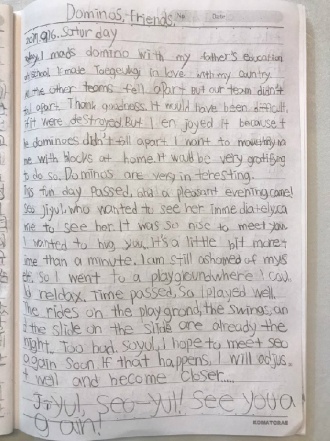 Dominos, friends,
No Date
9.16. Saturday
I made domino with my father's education
school. I made Taegeukgi in love with my country.
the other teams fell apart But our team didn't
fall apart. Thank goodness. It would have been difficult,
if it were destroyed. But I en joyed it because t
he dominoes didn't fall apart. I want to
me with blocks at home. It would be very gratifying
to do so. Dominos are very in teresting.
fun day passed, and a pleasant evening came!
Seo Jiyul, who wanted to see her imme diately ca
me to see her. It was so nice to meet you.
I wanted to hug you, It's a little bit more t
ime than a minute. I am still ashamed of mys
elf. So I went to a playground where I coul
d reldax. Time passed, So I played well.
The rides on the playgrond, the swing, an
d the slide on the slide are already the
night. Too bad. Soyul, I hope to meet seo
again soon If that happens, I will adjus
t well and become closer...
Ji-yul, Seo-yul! See you a
gain!
KOMATORAE